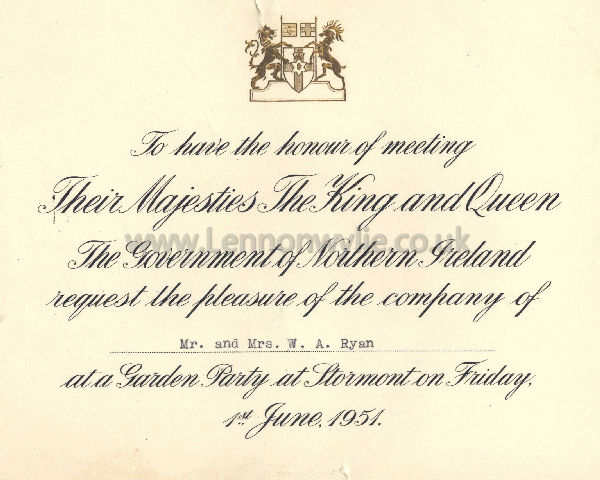 To have the honour of meeting
Their Majesties The King and Queen
www.Lennonwylie.co.uk
The Government of Northern Ireland
request the pleasure of the company of
Mr. and Mrs. W. A. Ryan
at a Garden Party at Stormont on Friday,
1st June, 1951.